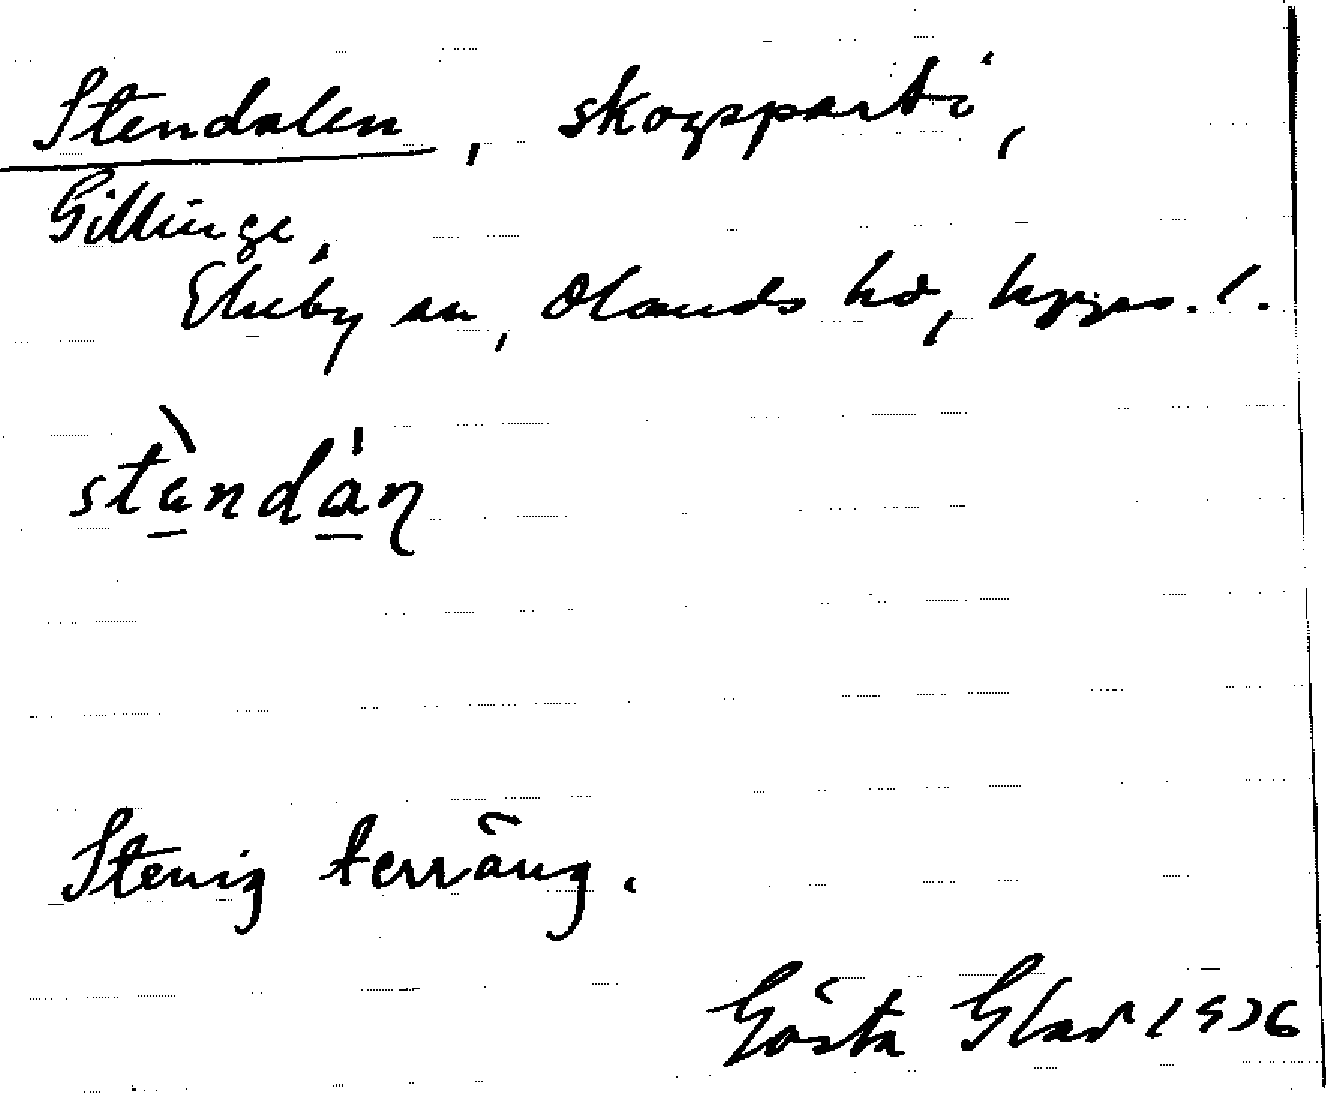 Stendalen, skogsparti,
Gillinge,
Ekeby sn, Olands hd, Uppsa. l.
stèndàn
Stenig terräng.
Gösta 1936